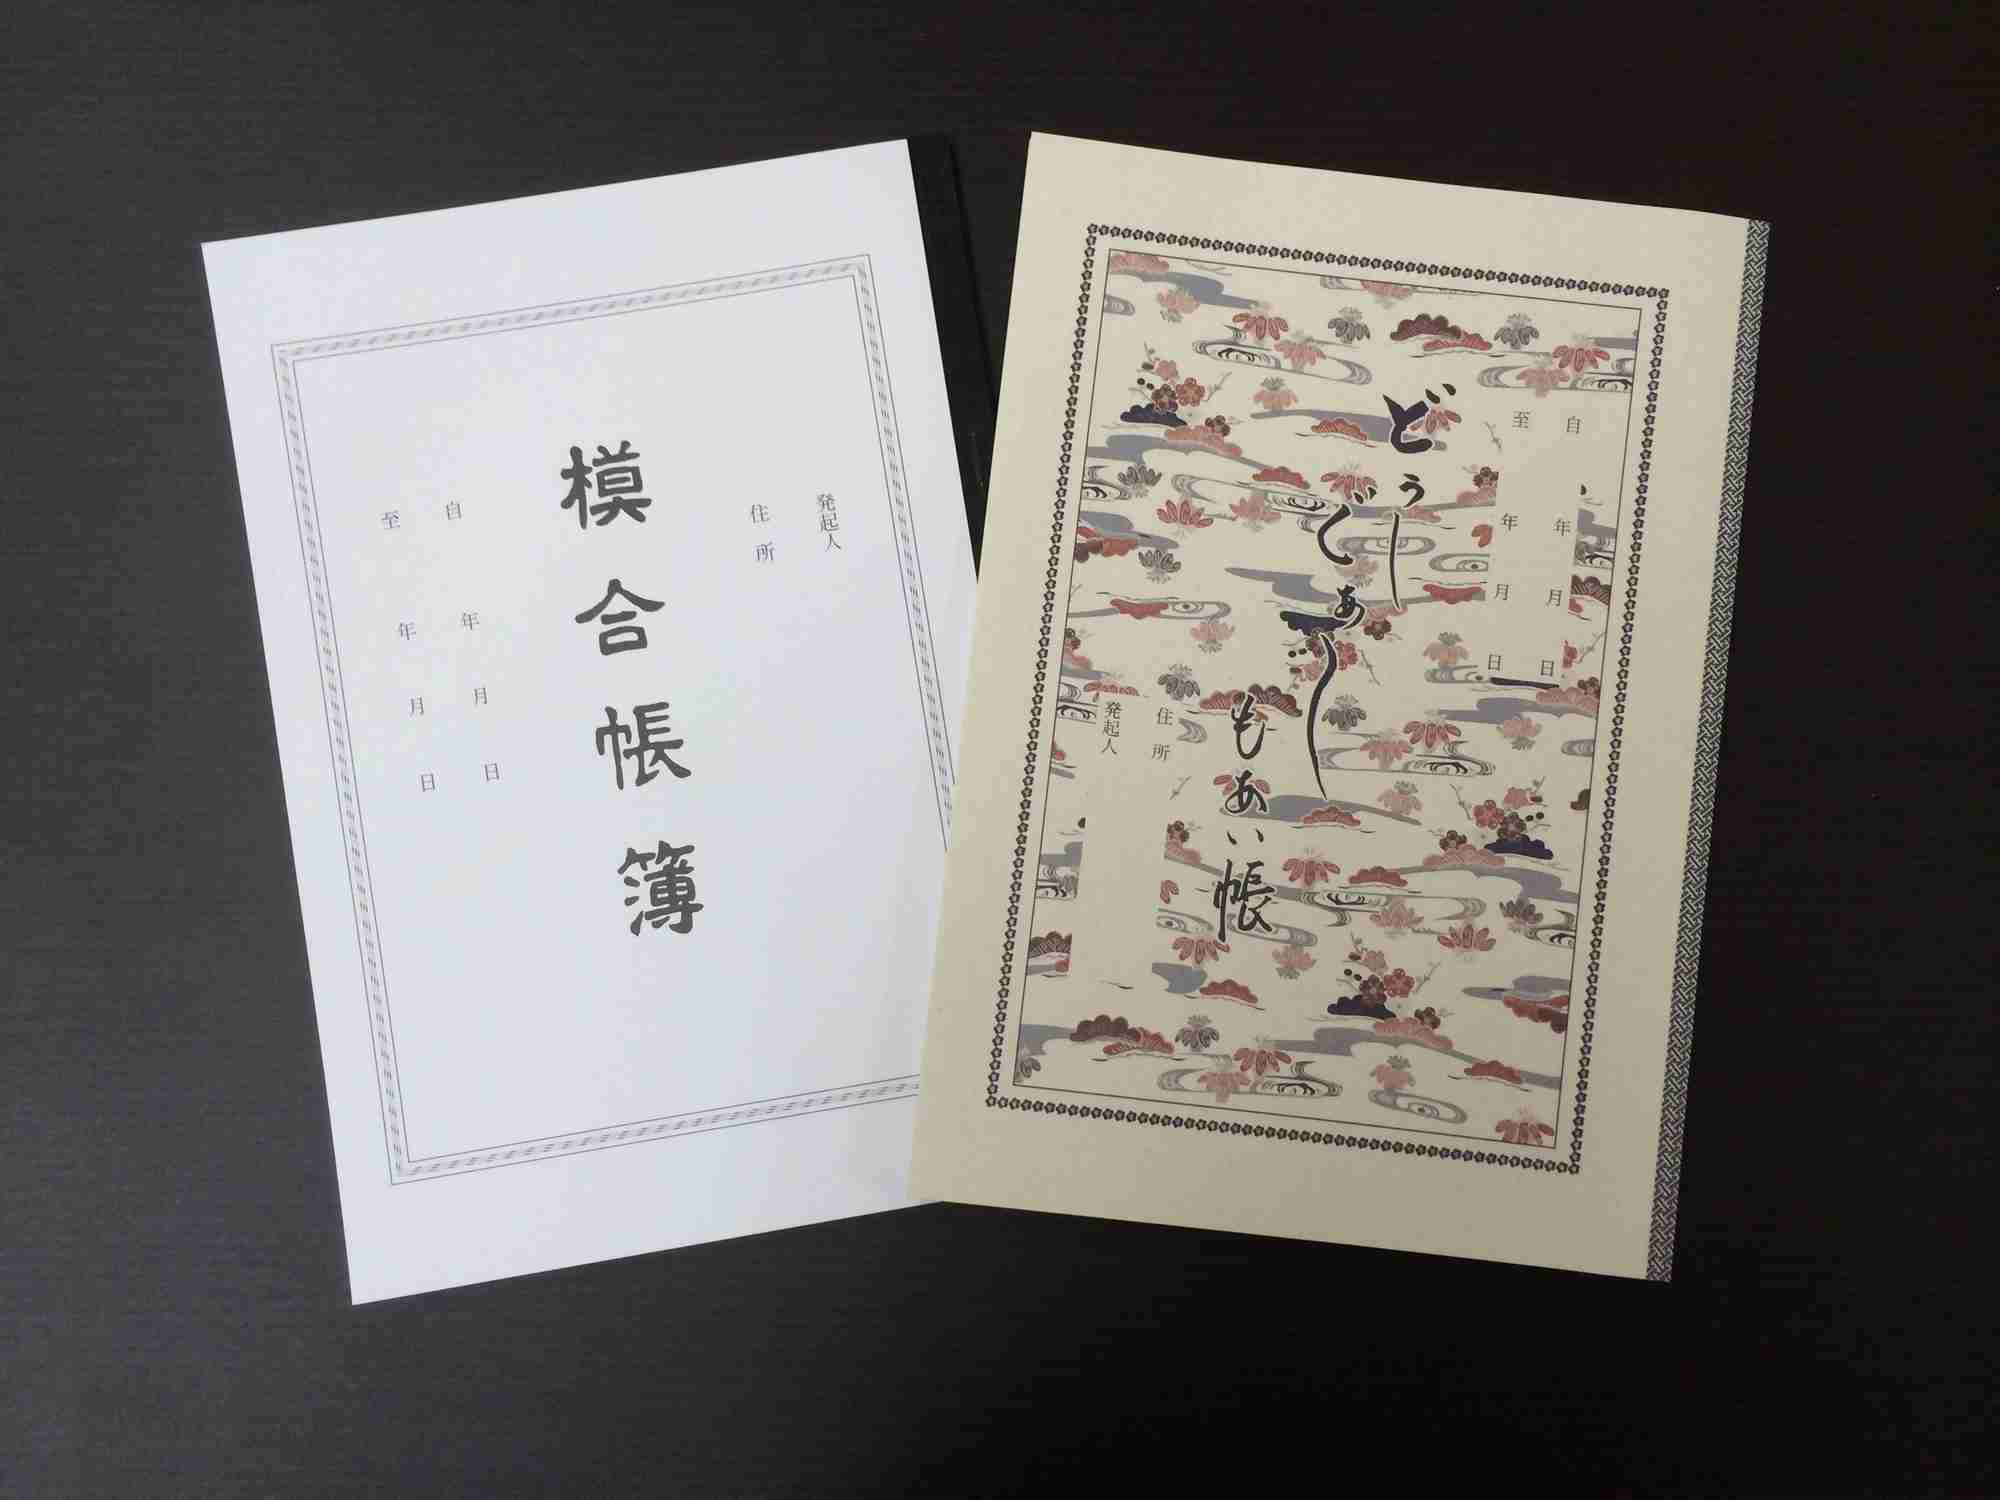 発起人
住所
模合帳簿
自 年 月 日
至 年 月 日
自 年 月 日
至 年 月 日
どぅー
しぐゎー
もあい帳
住所
発起人